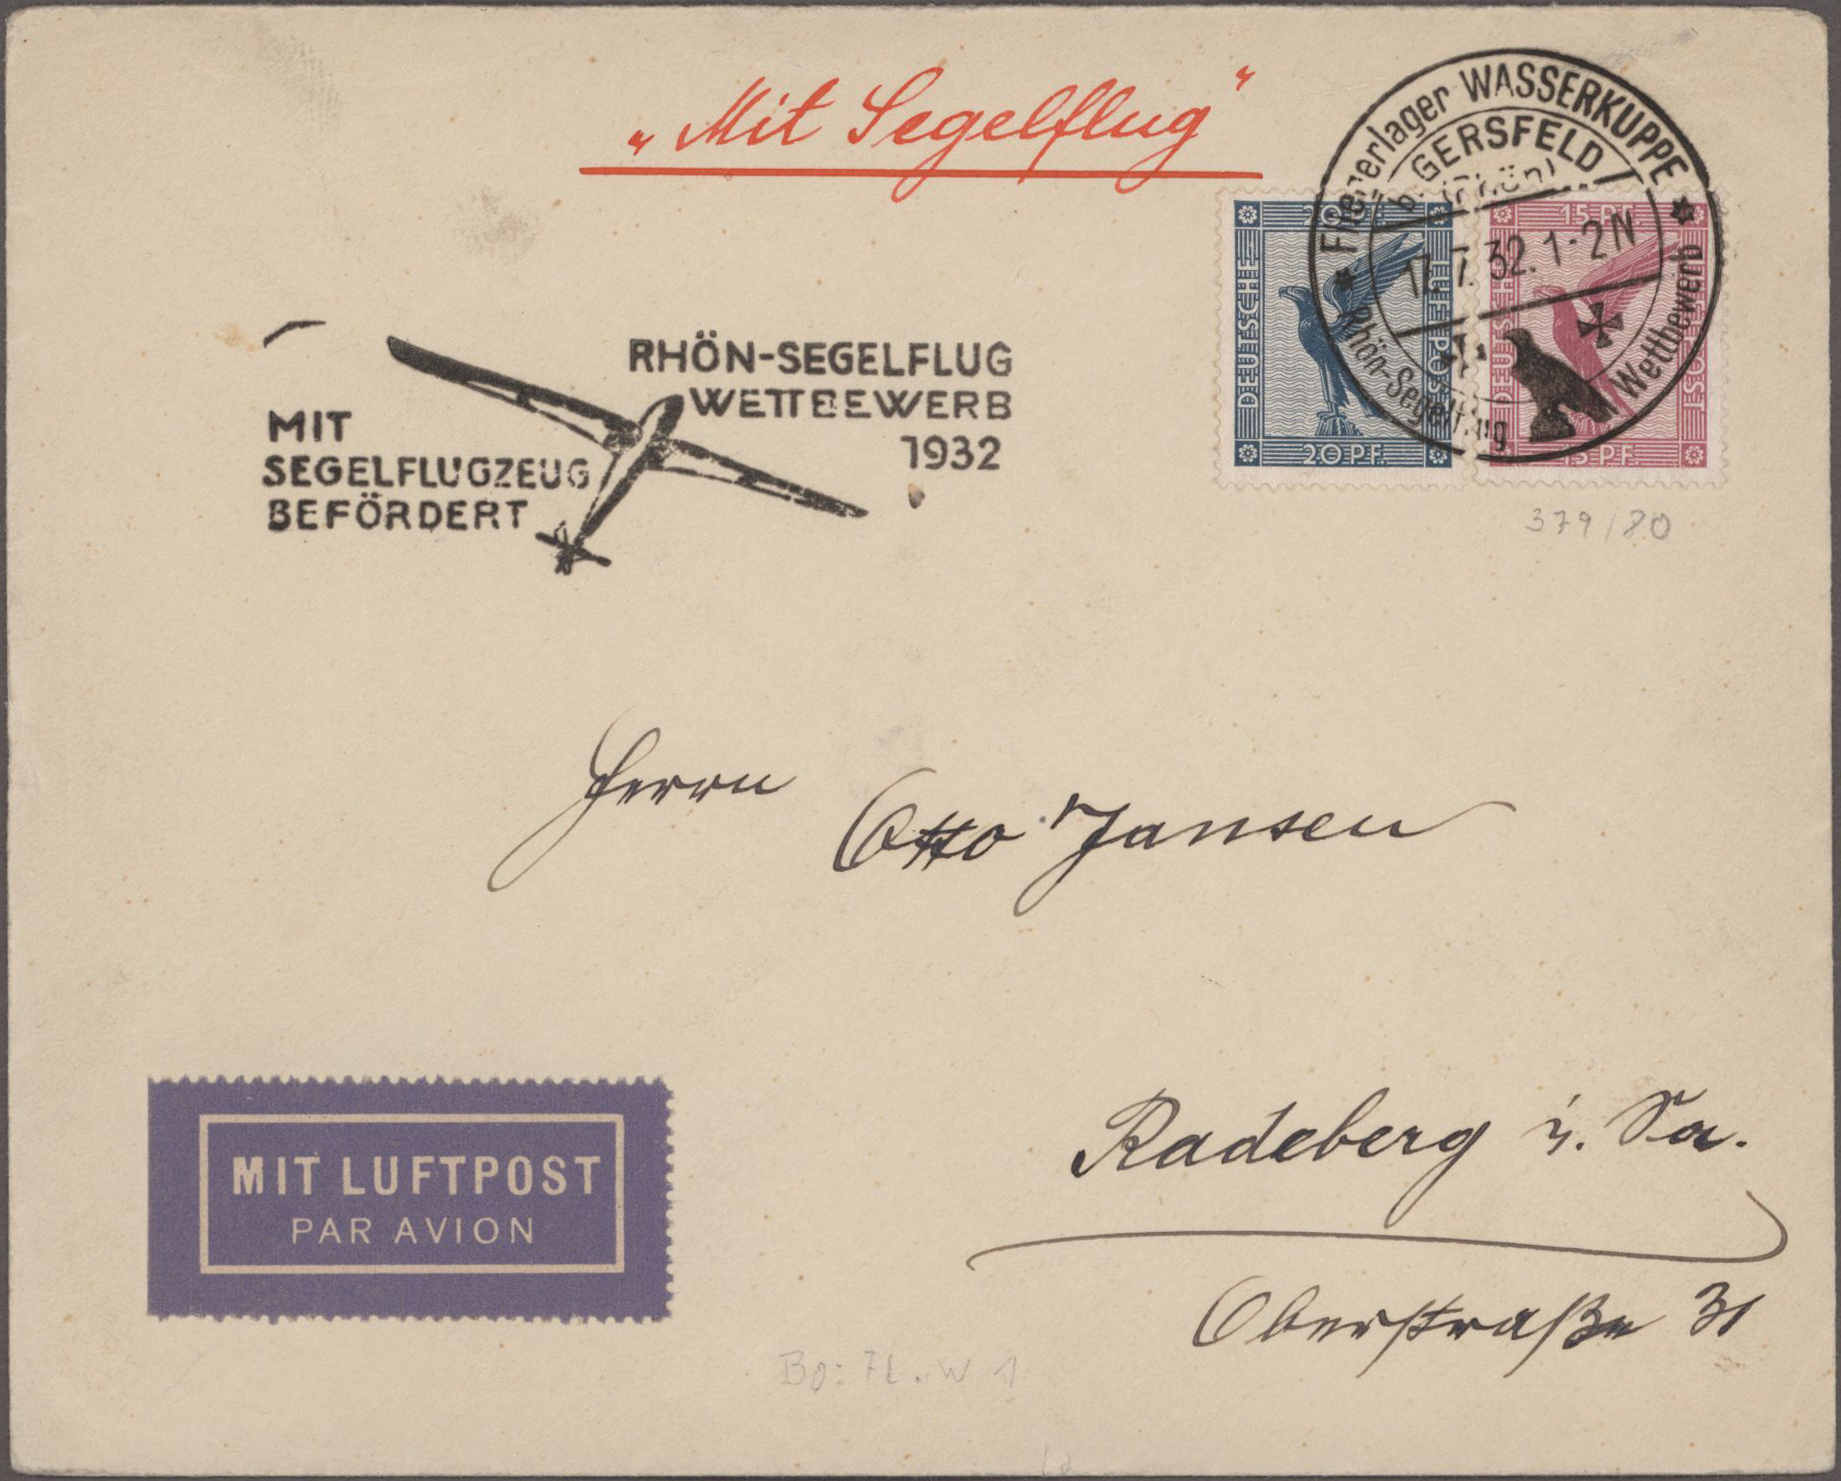 „Mit Segelflug"
Fliegerlager WASSERKUPPE
b. GERSFELD
(Rhön)
17.7.32. 1-2N
Rhön-Segelflug Wettbewerb
20 PF.
DEUTSCHE
LUFTPOST
20 PF.
15 PF.
DEUTSCHE
LUFTPOST
15 PF.
379/80
RHÖN-SEGELFLUG
WETTBEWERB
1932
MIT
SEGELFLUGZEUG
BEFÖRDERT
Herrn
Otto Jansen
Radeberg i. Sa.
Oberstraße 31
MIT LUFTPOST
PAR AVION